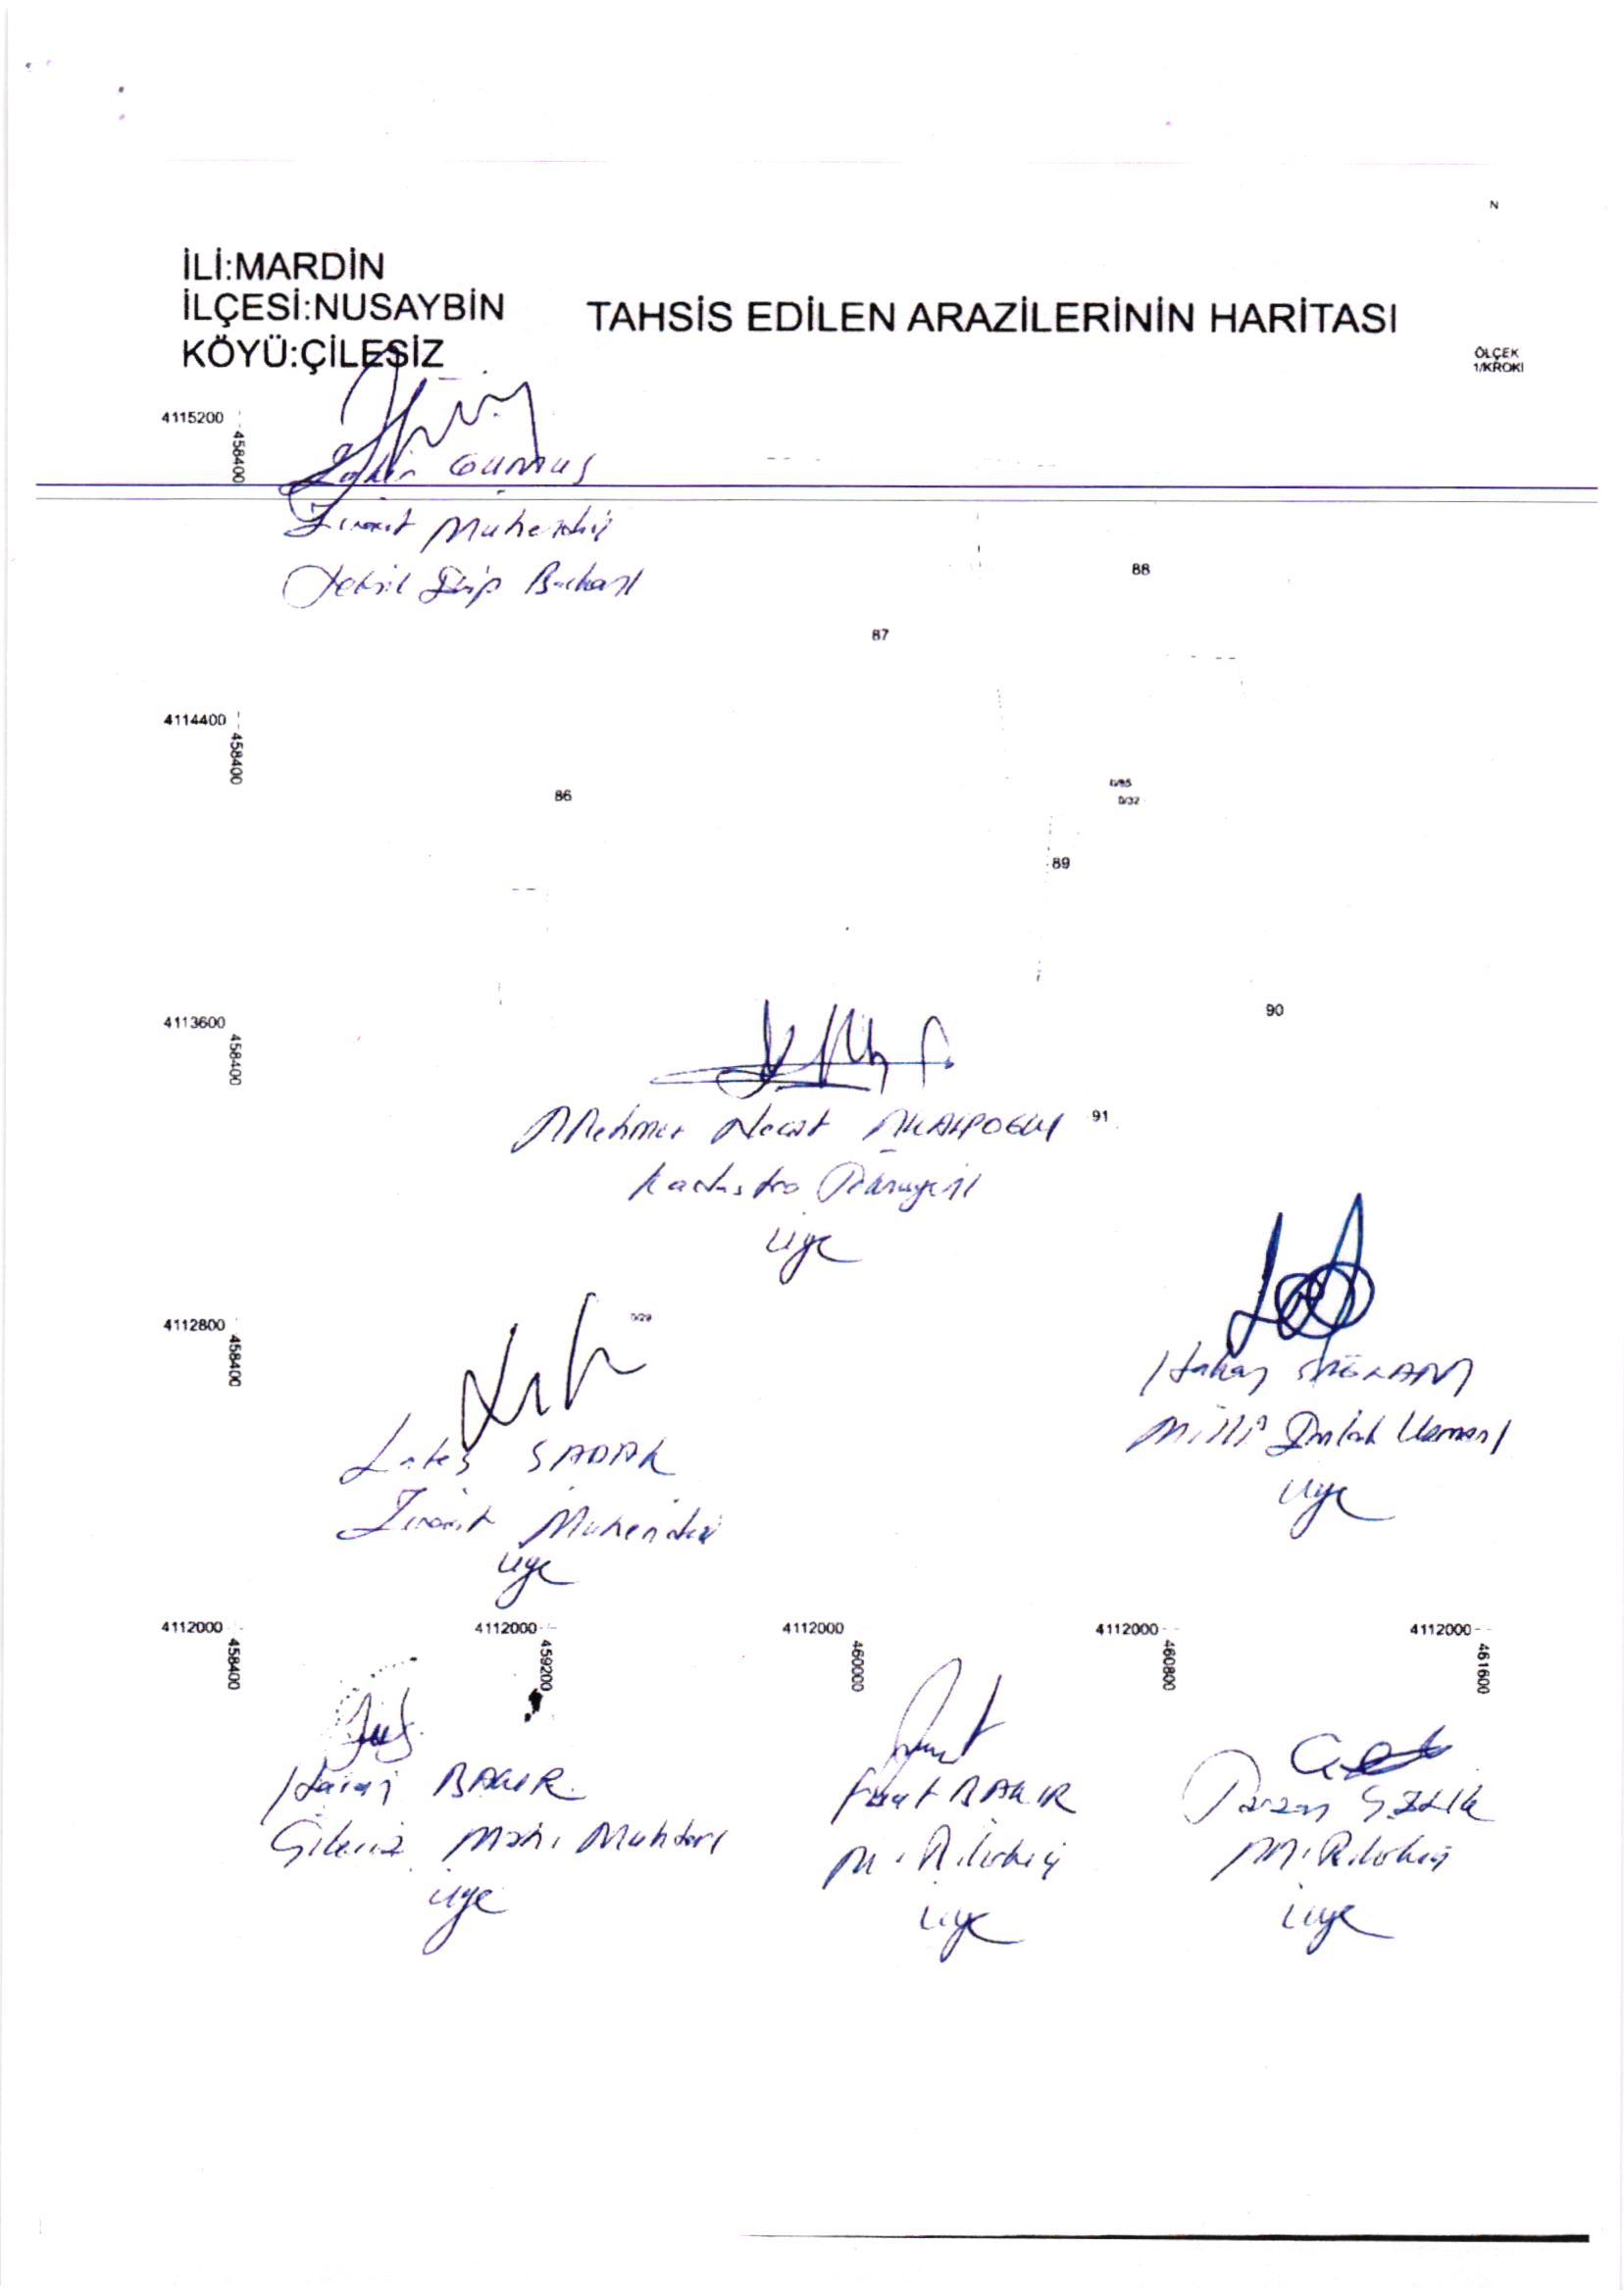 N
İLİ:MARDİN
İLÇESİ:NUSAYBİN
KÖYÜ:ÇİLESİZ
TAHSİS EDİLEN ARAZİLERİNİN HARİTASI
ÖLÇEK
1/KROKİ
4115200
458400
GÜMÜŞ
Ziraat Mühendisi
88
87
4114400
458400
86
0/32
89
4113600
458400
90
Mehmet Necat
91
Kadastro
Üye
4112800
458400
0/29
Hakan
Milli Emlak Uzmanı
Üye
SADAK
Ziraat Mühendisi
Üye
4112000 4112000 4112000 4112000 4112000
458400 459200 460000 460800 461600
BAKIR
Fuat BAKIR
Çilesiz Mah. Muhtarı
M. Bilirkişi
M. Bilirkişi
Üye
Üye
Üye